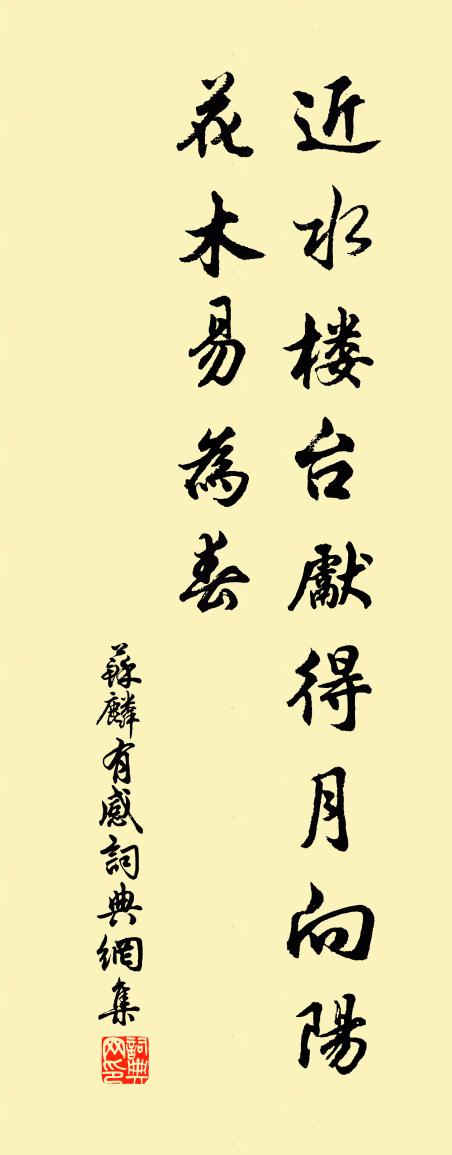 近水楼台獻得月向陽
花木易為春
蘇麟有感詞典網集
詞典网印